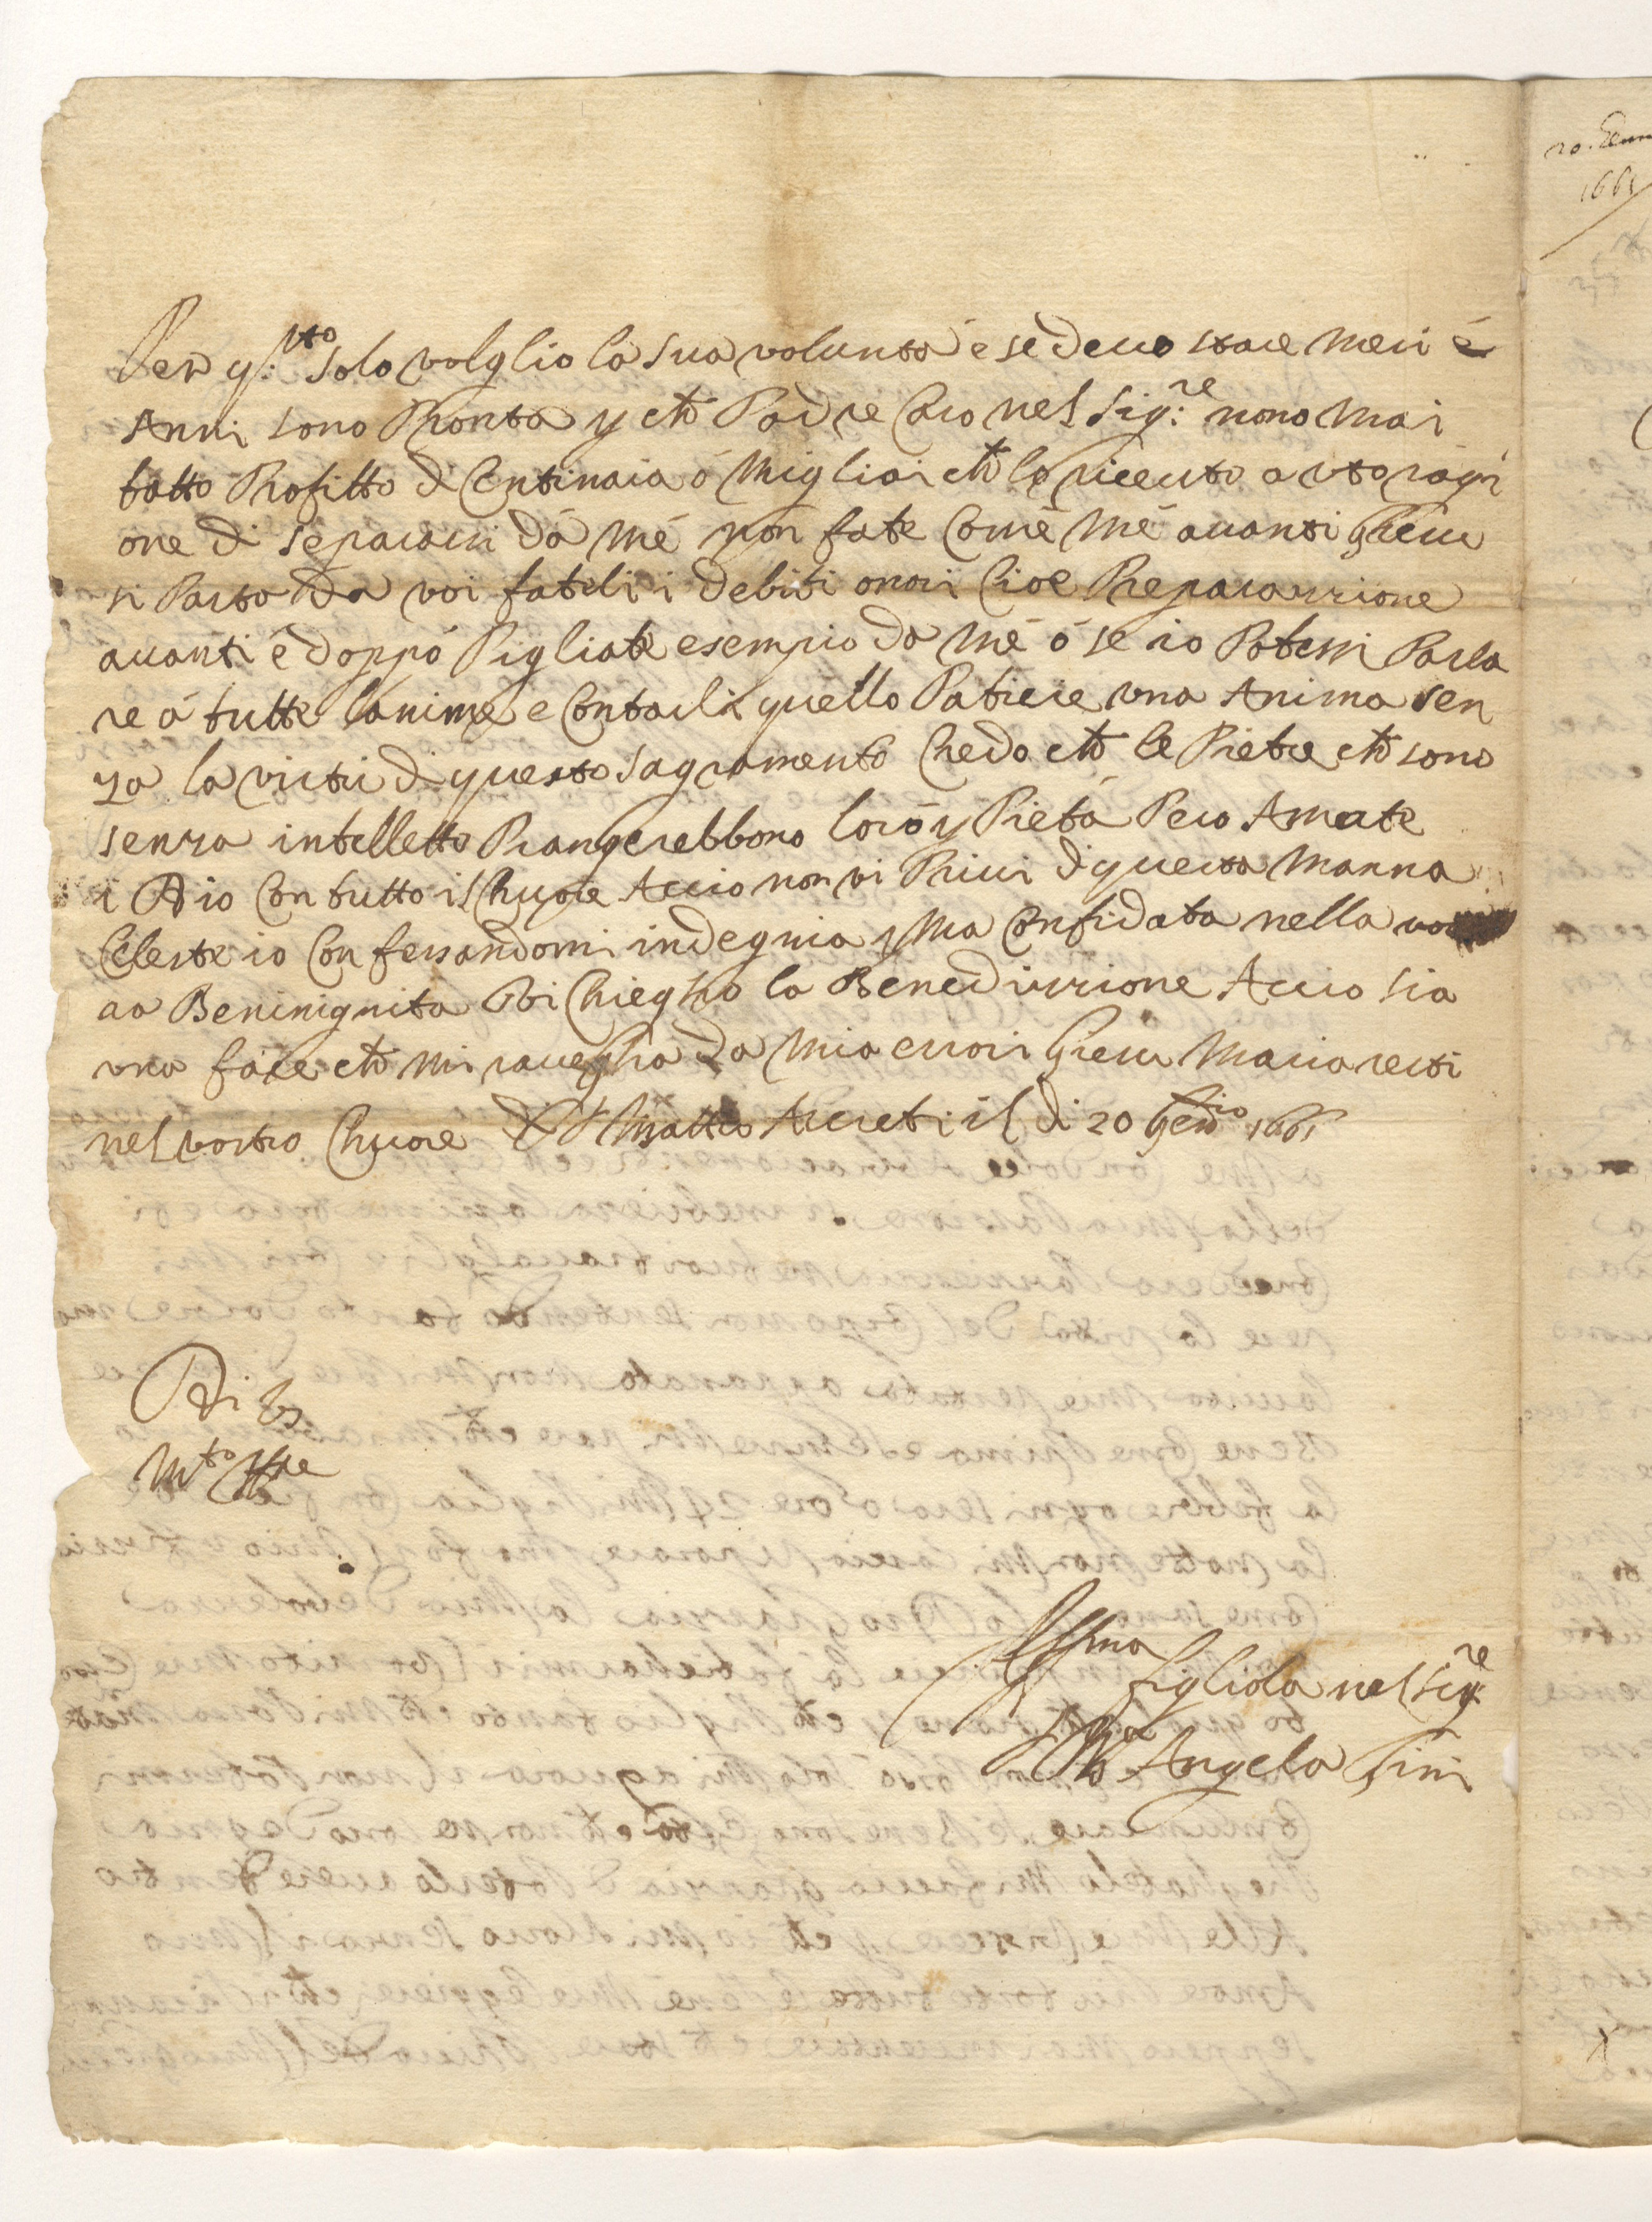 Per q:sto solo volglio la sua volunta e se devo stare mesi è
Anni sono Pronta p che Padre Caro nel Sig:re nono mai
fatto Profitto di Centinaia ó Migliai che lo riceuto a uto ragi
one di separarsi dá mé non fate come mé auanti Giesu
si Parta da voi fateli i debiti onori cioe Preparazzione
auanti é doppo Pigliate esempio da mé ó se io Potessi Parla
re á tutte lanime e Contarli quello Patisse una Anima sen
za la virtù di questo sagramento Credo che le Pietre che sono
senza intelletto Piangerebbono loró p Pietá Pero Amate
i Dio Con tutto il Chuore Accio non vi Privi di questa Manna
Celeste io Confessandomi indegnia p Ma Confidata nella vo
ra Beninignita Vi Chiegho la Benedizzione Accio sia
una face che mi sueglia da mia errori Giesu Maria resti
nel vostro Chuore Di S Matteo Arcetri il di 20 Genio 1661
Di Vs
Mto Ille
20. Genn
1661
Affma figliola nel Sigre
Sr Ma Angela Gini